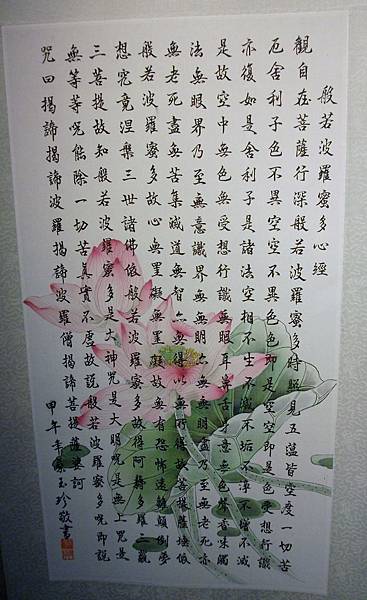 般若波羅蜜多心經
觀自在菩薩行深般若波羅蜜多時照見五蘊皆空度一切苦
厄舍利子色不異空空不異色色即是空空即是色受想行識
亦復如是舍利子是諸法空相不生不滅不垢不淨不增不減
是故空中無色無受想行識無眼耳鼻舌身意無色聲香味觸
法無眼界乃至無意識界無無明亦無無明盡乃至無老死亦
無老死盡無苦集滅道無智亦無得以無所得故菩提薩埵依
般若波羅蜜多故心無罣礙無罣礙故無有恐怖遠離顛倒夢
想究竟涅槃三世諸佛依般若波羅蜜多故得阿耨多羅三藐
三菩提故知般若波羅蜜多是大神咒是大明咒是無上咒是
無等等咒能除一切苦真實不虛故說般若波羅蜜多咒即說
咒曰揭諦揭諦波羅揭諦波羅僧揭諦菩提薩婆訶
甲午年 玉珍敬書